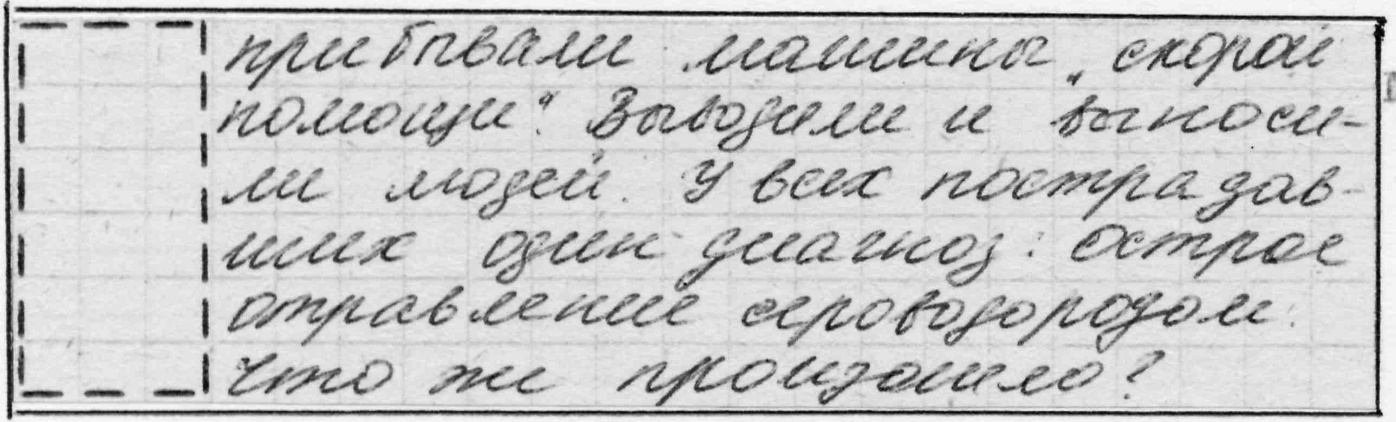 прибывали машины „скорой
помощи“. Выводили и выноси-
ли людей. У всех пострадав-
ших один диагноз: острое
отравление сероводородом.
Что же произошло?